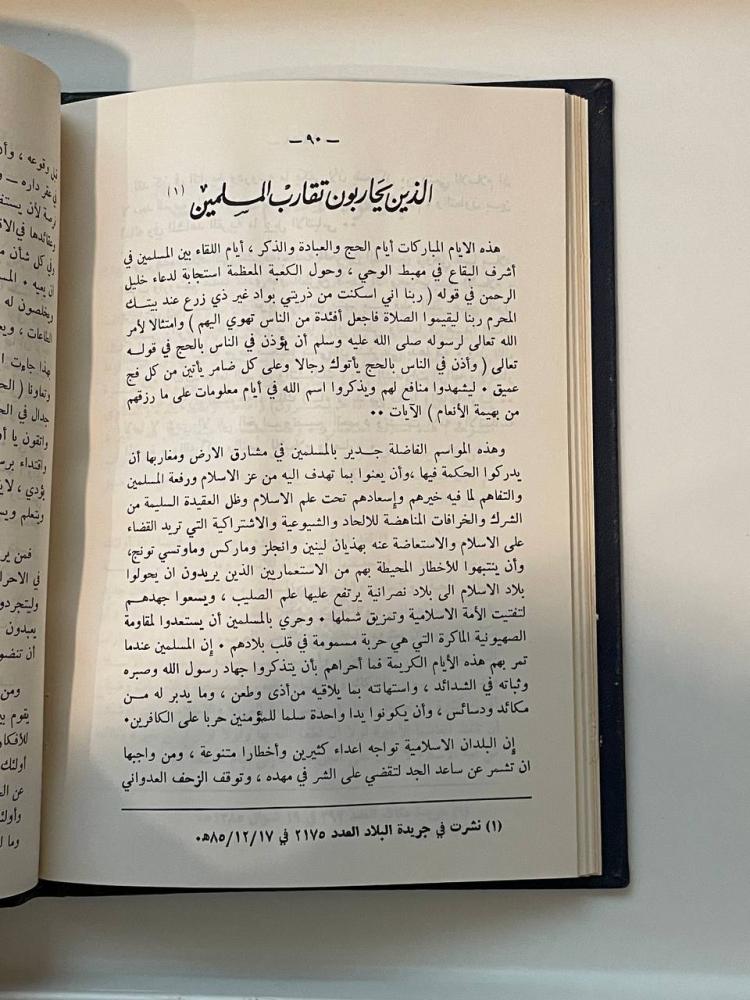 — ٩٠ —
الذين يحاربون تقارب المسلمين (١)
هذه الايام المباركات أيام الحج والعبادة والذكر ، أيام اللقاء بين المسلمين في
أشرف البقاع في مهبط الوحي ، وحول الكعبة المعظمة استجابة لدعاء خليل
الرحمن في قوله ( ربنا اني اسكنت من ذريتي بواد غير ذي زرع عند بيتـــك
المحرم ربنا ليقيموا الصلاة فاجعل أفئدة من الناس تهوي اليهم ) وامتثالا لأمر
الله تعالى لرسوله صلى الله عليه وسلم أن يؤذن في الناس بالحج في قولـــه
تعالى ( وأذن في الناس بالحج يأتوك رجالا وعلى كل ضامر يأتين من كل فج
عميق ٠ ليشهدوا منافع لهم ويذكروا اسم الله في أيام معلومات على ما رزقهم
من بهيمة الأنعام ) الآيات ٠٠
وهذه المواسم الفاضلة جـــدير بالمسلمين في مشارق الارض ومغاربها أن
يدركوا الحكمة فيها ،وأن يعنوا بما تهدف اليه من عز الاسلام ورفعة المسلمين
والتفاهم لما فيه خيرهم وإسعادهم تحت علم الاسلام وظل العقيدة السليمة من
الشرك والخرافات المناهضة للالحاد والشيوعية والاشتراكية التي تريد القضاء
على الاسلام والاستعاضة عنه بهذيان لينين وانجلز وماركس وماوتسي تونج،
وأن ينتبهوا للأخطار المحيطة بهم من الاستعماريين الذين يريدون ان يحولوا
بلاد الاسلام الى بلاد نصرانية يرتفع عليها علم الصليب ، ويسعوا جهدهـــم
لتفتيت الأمة الاسلامية وتمزيق شملها ٠ وحري بالمسلمين أن يستعدوا لمقاومة
الصهيونية الماكرة التي هي حربة مسمومة في قلب بلادهم ٠ إن المسلمين عندما
تمر بهم هذه الأيام الكريمة فما أحراهم بأن يتذكروا جهاد رسول الله وصبره
وثباته في الشدائد ، واستهانته بما يلاقيه من أذى وطعن ، وما يدبر له مـــن
مكائد ودسائس ، وأن يكونوا يدا واحدة سلما للمؤمنين حربا على الكافرين٠
إن البلدان الاسلامية تواجه اعداء كثيرين وأخطارا متنوعة ، ومن واجبها
ان تشمر عن ساعد الجد لتقضي على الشر في مهده ، وتوقف الزحف العدواني
(١) نشرت في جريدة البلاد العدد ٢١٧٥ في ٨٥/١٢/١٧هـ٠